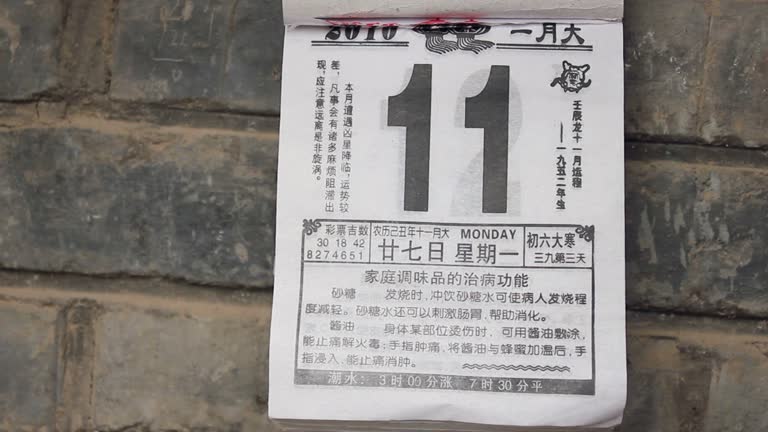 2010 一月大
11
本月遭遇凶星降临，运势较
差，凡事会有诸多麻烦阻滞出
现，应注意远离是非旋涡。
壬辰龙十一月运程
——一九五二年生
彩票吉数
30 18 42
8274651
农历己丑年十一月大 MONDAY
廿七日 星期一
初六大寒
三九第三天
家庭调味品的治病功能
砂糖 发烧时，冲饮砂糖水可使病人发烧程
度减轻。砂糖水还可以刺激肠胃，帮助消化。
酱油 身体某部位烫伤时，可用酱油敷涂，
能止痛解火毒；手指肿痛，将酱油与蜂蜜加温后，手
指浸入，能止痛消肿。
潮水：3时00分涨 7时30分平